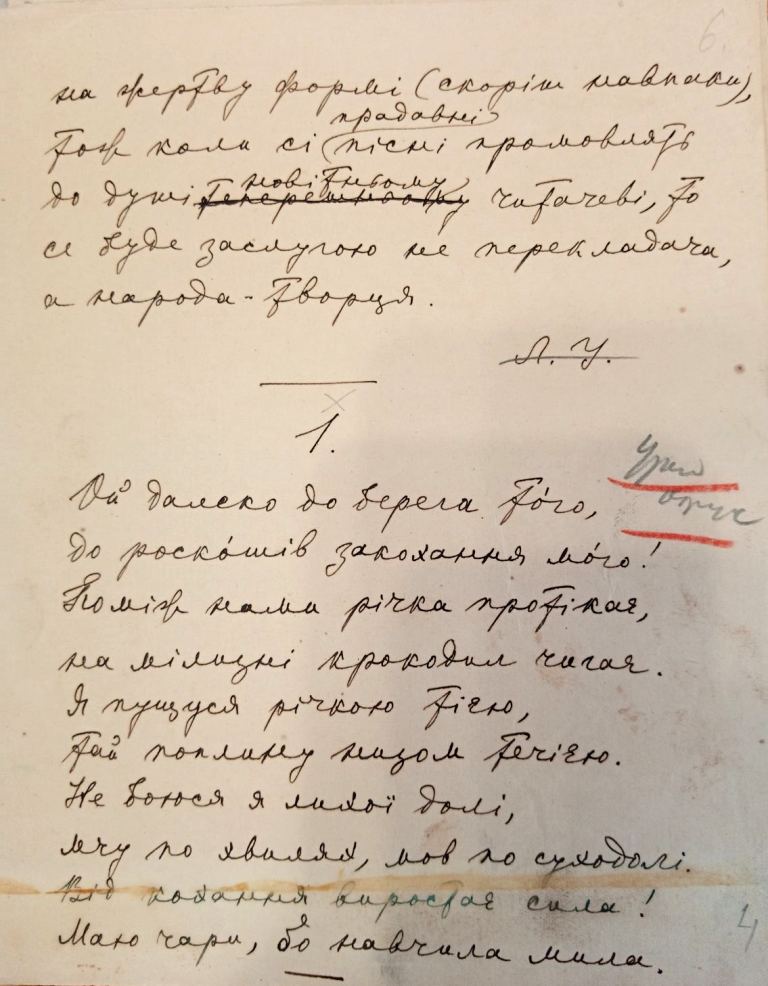 6.
на жертву формі (скоріш навпаки),
прадавні
тож коли сі пісні промовлять
новітньому
до душі теперешньому читачеві, то
се буде заслугою не перекладача,
а народа-творця.
Л. У.
1.
Ой далеко до берега то́го,
до роско́шів закохання мо́го!
Поміж нами річка протікає,
на мілизні крокодил чигає.
Я пущуся річкою тією,
тай поплину низом течією.
Не боюся я лихої долі,
мчу по хвилях, мов по суходолі.
Від кохання виростає сила!
Маю чари, бо навчила мила.
4